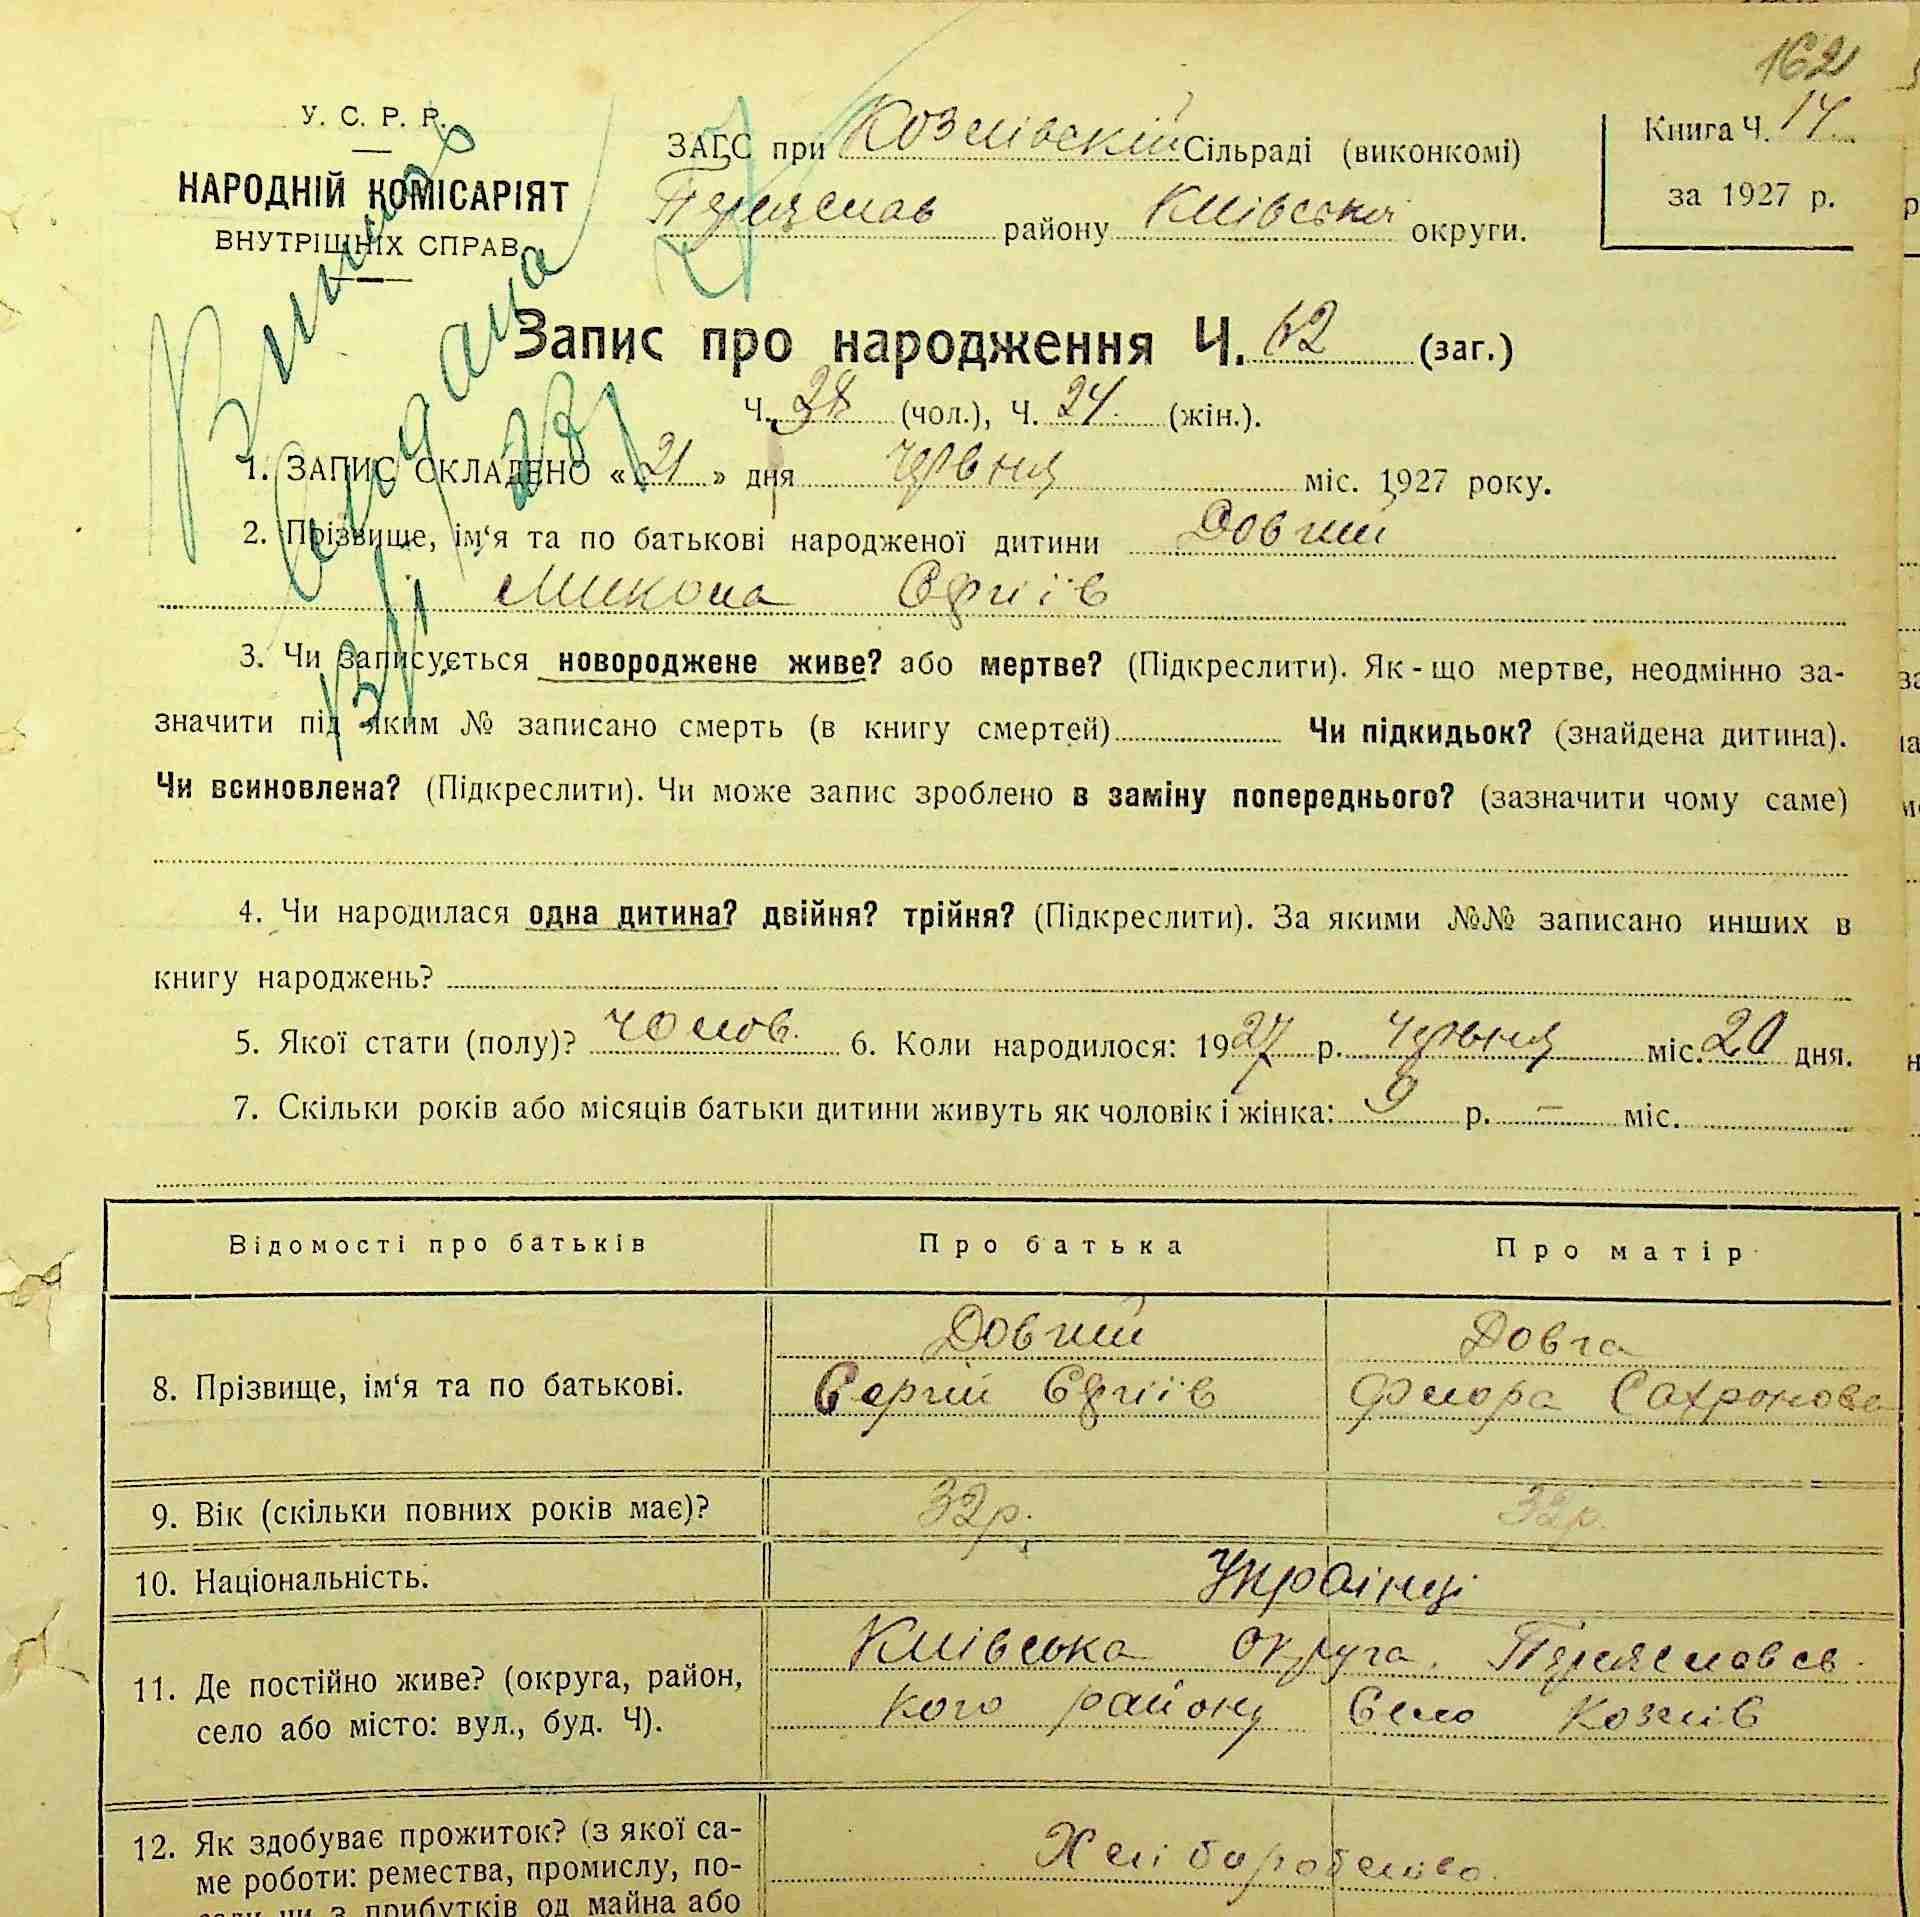 162
У. С. Р. Р.
НАРОДНІЙ КОМІСАРІЯТ
ВНУТРІШНІХ СПРАВ
ЗАГС при Козлівській Сільраді (виконкомі)
Переяслав району Київської округи.
Книга Ч. 14
за 1927 р.
Запис про народження Ч. 62 (заг.)
Ч. 38 (чол.), Ч. 24. (жін.).
1. ЗАПИС СКЛАДЕНО «21» дня червня міс. 1927 року.
2. Прізвище, ім‘я та по батькові народженої дитини Довгий
Микола
3. Чи записується новороджене живе? або мертве? (Підкреслити). Як-що мертве, неодмінно за-
значити під яким № записано смерть (в книгу смертей) Чи підкидьок? (знайдена дитина).
Чи всиновлена? (Підкреслити). Чи може запис зроблено в заміну попереднього? (зазначити чому саме)
4. Чи народилася одна дитина? двійня? трійня? (Підкреслити). За якими №№ записано инших в
книгу народжень?
5. Якої стати (полу)? чолов. 6. Коли народилося: 1927 р. червня міс. 20 дня.
7. Скільки років або місяців батьки дитини живуть як чоловік і жінка: 9 р. — міс.
Відомості про батьків Про батька Про матір
Довгий Довга
8. Прізвище, ім‘я та по батькові. Сергій
9. Вік (скільки повних років має)? 32 р. 32 р.
10. Національність. Українці
Київська округа Переяславсь
11. Де постійно живе? (округа, район,
кого району Село Козлів
село або місто: вул., буд. Ч).
12. Як здобуває прожиток? (з якої са-
Хліборобство.
ме роботи: ремества, промислу, по-
сади чи з прибутків од майна або